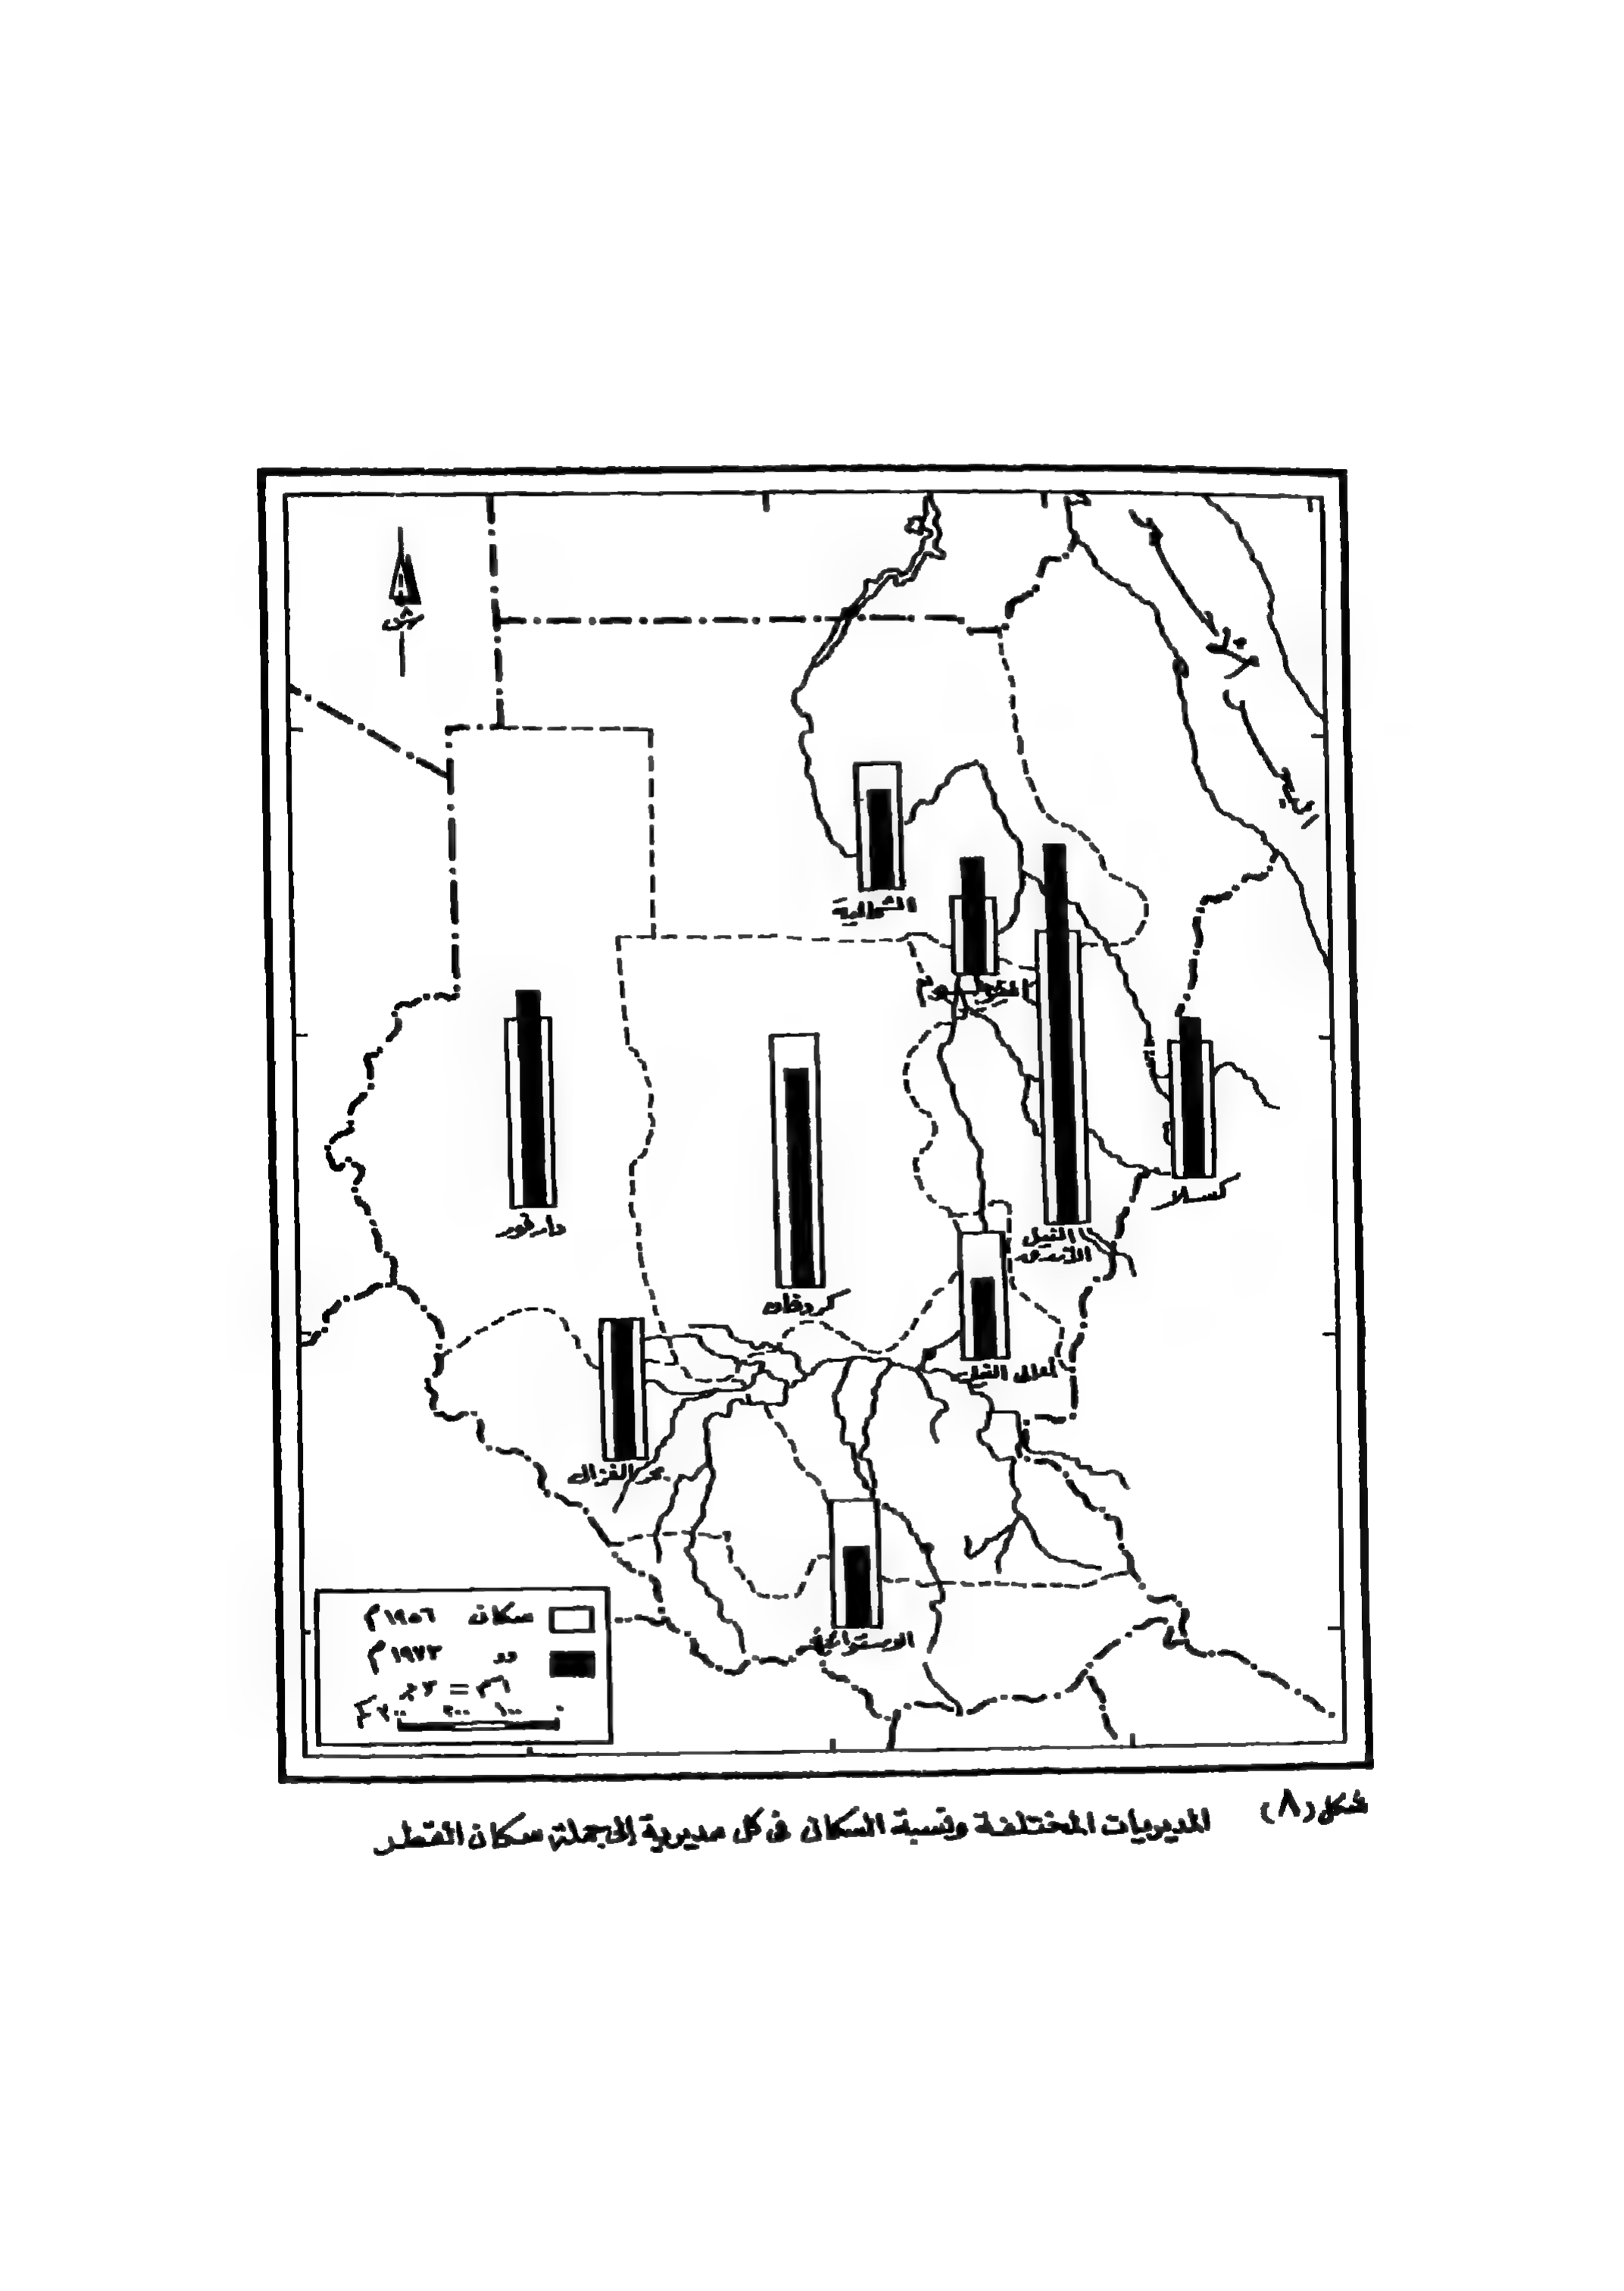 ش
الشمالية
الخرطوم
كسلا
النيل
الأزرق
دارفور
كردفان
أعالى النيل
بحر الغزال
الاستوائية
سكان ١٩٥٦م
١٩٧٣م
شكل (٨)
المديريات المختلفة ونسبة السكان فى كل مديرية إلى جملة سكان القطر